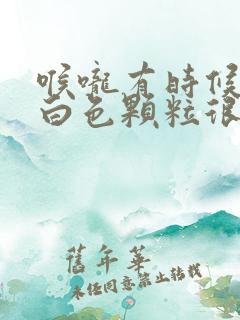 喉嚨有時候
白色顆粒很
舊年華
未經同意禁止轉載